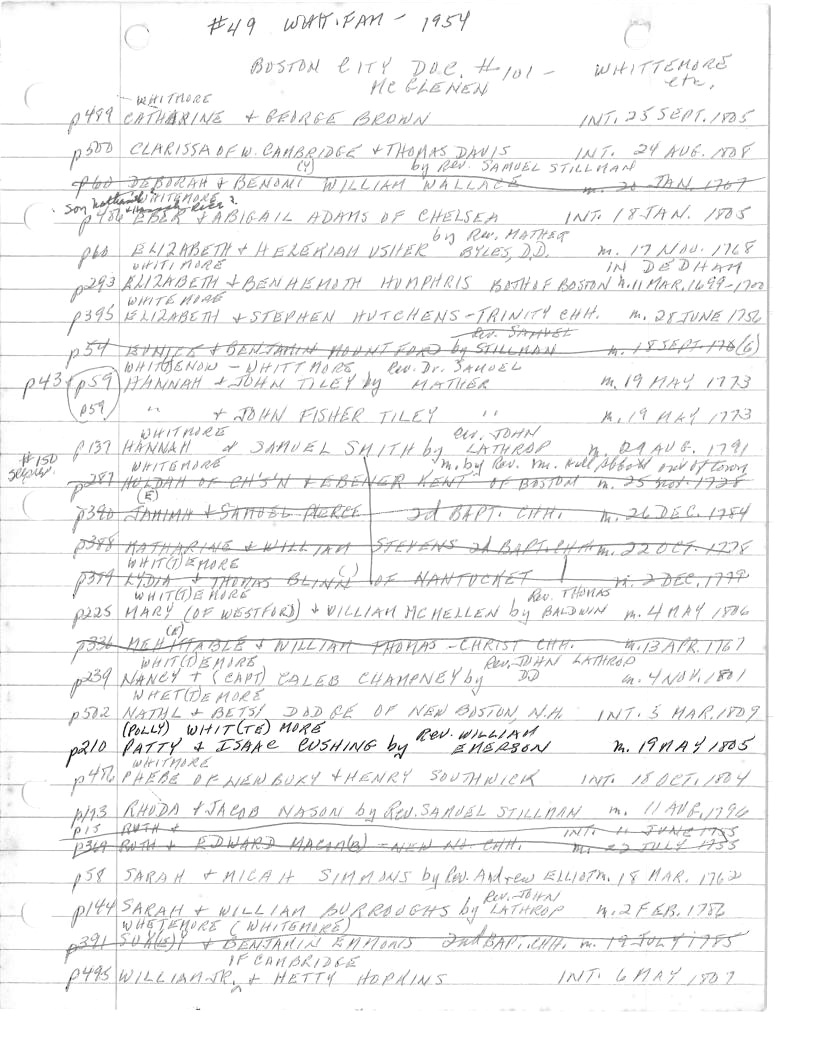 #49 WHIT. FAM - 1954
BOSTON CITY DOC. #101 - WHITTEMORE
McGLENEN etc.
WHITMORE
p489 CATHARINE & GEORGE BROWN INT. 25 SEPT. 1805
p500 CLARISSA OF W. CAMBRIDGE & THOMAS DAVIS INT. 24 AUG. 1808
(Y) by Rev. SAMUEL STILLMAN
p60 DEBORAH & BENONI WILLIAM WALLACE m. 20 JAN. 1767
Son WHITEMORE
p486 EBER & ABIGAIL ADAMS OF CHELSEA INT. 18 JAN. 1805
by Rev. MATHER
p60 ELIZABETH & HEZEKIAH USHER BYLES, D.D. m. 17 NOV. 1768
WHITIMORE IN DEDHAM
p293 ELIZABETH & BENHEMOTH HUMPHRIS BOTH OF BOSTON m. 11 MAR. 1699-1700
WHITEMORE
p395 ELIZABETH & STEPHEN HUTCHENS - TRINITY CHH. m. 28 JUNE 1756
Rev. SAMUEL
p54 EUNICE & BENJAMIN MOUNTFORD by STILLMAN m. 18 SEPT. 176(6)
WHITBENOW - WHITTMORE, Rev. Dr. SAMUEL
p43 p59 HANNAH & JOHN TILEY by MATHER m. 19 MAY 1773
p59 " & JOHN FISHER TILEY " m. 19 MAY 1773
WHITMORE Rev. JOHN
p137 HANNAH & SAMUEL SMITH by LATHROP m. 29 AUG. 1791
#150
WHITEMORE m. by Rev. Mr. Hull Abbott out of town
p287 HULDAH OF CH'S'N & EBENER KENT OF BOSTON m. 25 Nov. 1728
(E)
p390 JAMIMH & SAMUEL PIERCE 2d BAPT. CHH. m. 26 DEC. 1784
p388 KATHARINE & WILLIAM STEVENS 2d BAPT. CHH. m. 22 OCT. 1778
WHIT(T)EMORE
p379 LYDIA & THOMAS BLINN OF NANTUCKET m. 2 DEC. 1779
WHIT(T)EMORE Rev. THOMAS
p225 MARY (OF WESTFORD) & WILLIAM McMELLEN by BALDWIN m. 4 MAY 1806
p336 MEHITTABLE & WILLIAM THOMAS - CHRIST CHH. m. 13 APR. 1767
WHIT(T)EMORE Rev. JOHN LATHROP
p239 NANCY & (CAPT) CALEB CHAMPNEY by DD m. 4 NOV. 1801
WHET(T)EMORE
p502 NATHL & BETSY DODGE OF NEW BOSTON, N.H. INT. 5 MAR. 1809
(POLLY) WHIT(TE)MORE REV. WILLIAM
p210 PATTY & ISAAC CUSHING by EMERSON m. 19 MAY 1805
WHITMORE
p476 PHEBE OF NEWBURY & HENRY SOUTHWICK INT. 18 OCT. 1804
p173 RHODA & JACOB NASON by Rev. SAMUEL STILLMAN m. 11 AUG. 1796
p15 RUTH & INT. 11 JUNE 1755
p369 RUTH & EDWARD MACOM(B) - NEW NO. CHH. m. 22 JULY 1755
p58 SARAH & MICAH SIMMONS by Rev. Andrew ELLIOT m. 18 MAR. 1762
Rev. JOHN
p144 SARAH & WILLIAM BURROUGHS by LATHROP m. 2 FEB. 1786
WHETEMORE (WHITEMORE)
p391 SUK(E)Y & BENJAMIN EMMONS 2nd BAP. CHH. m. 19 JULY 1785
OF CAMBRIDGE
p495 WILLIAM JR. & HETTY HOPKINS INT. 6 MAY 1807